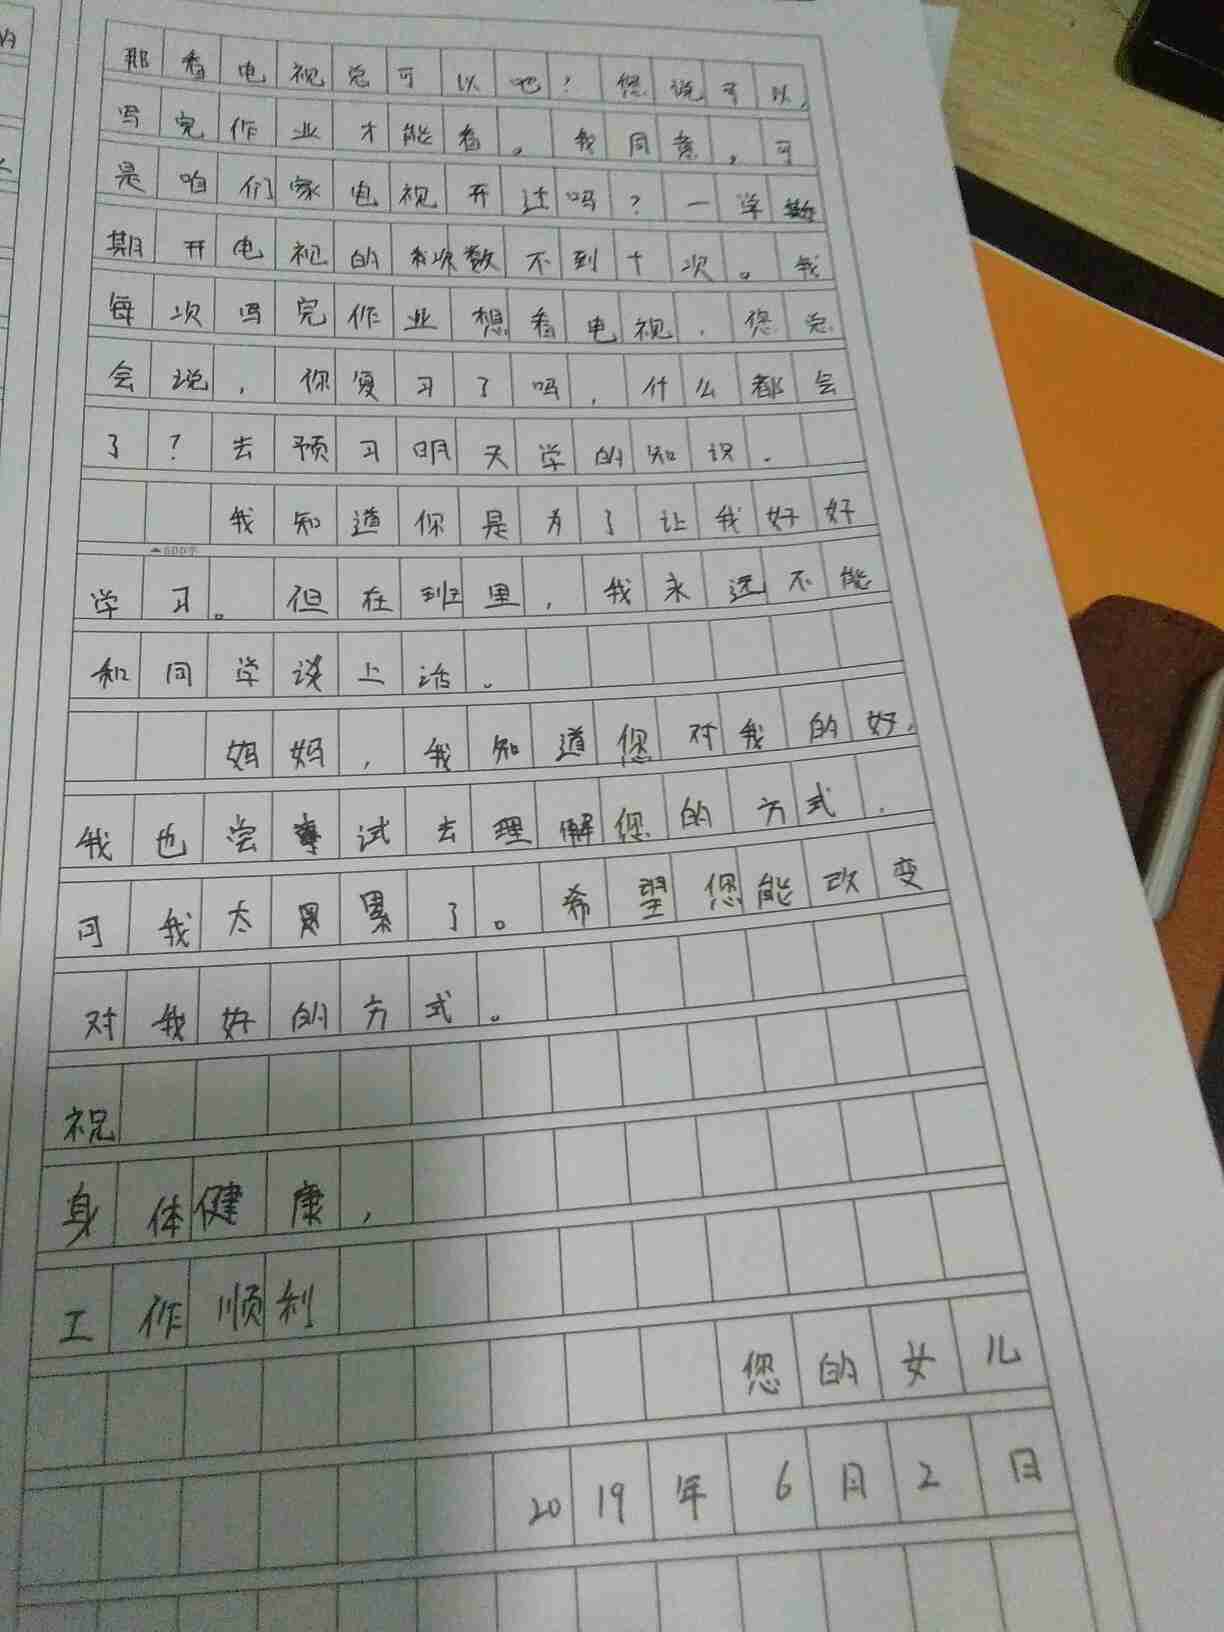 那看电视总可以吧？您说可以，
写完作业才能看。我同意，可
是咱们家电视开过吗？一学
期开电视的次数不到十次。我
每次写完作业想看电视，您总
会说，你复习了吗，什么都会
了？去预习明天学的知识。
我知道你是为了让我好好
▲600字
学习。但在班里，我永远不能
和同学谈上话。
妈妈，我知道您对我的好，
我也尝试去理解您的方式，
可我太累了。希望您能改变
对我好的方式。
祝
身体健康，
工作顺利
您的女儿
2019年6月2日